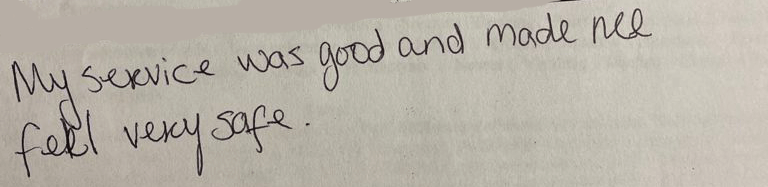 My service was good and made me
feel very safe.